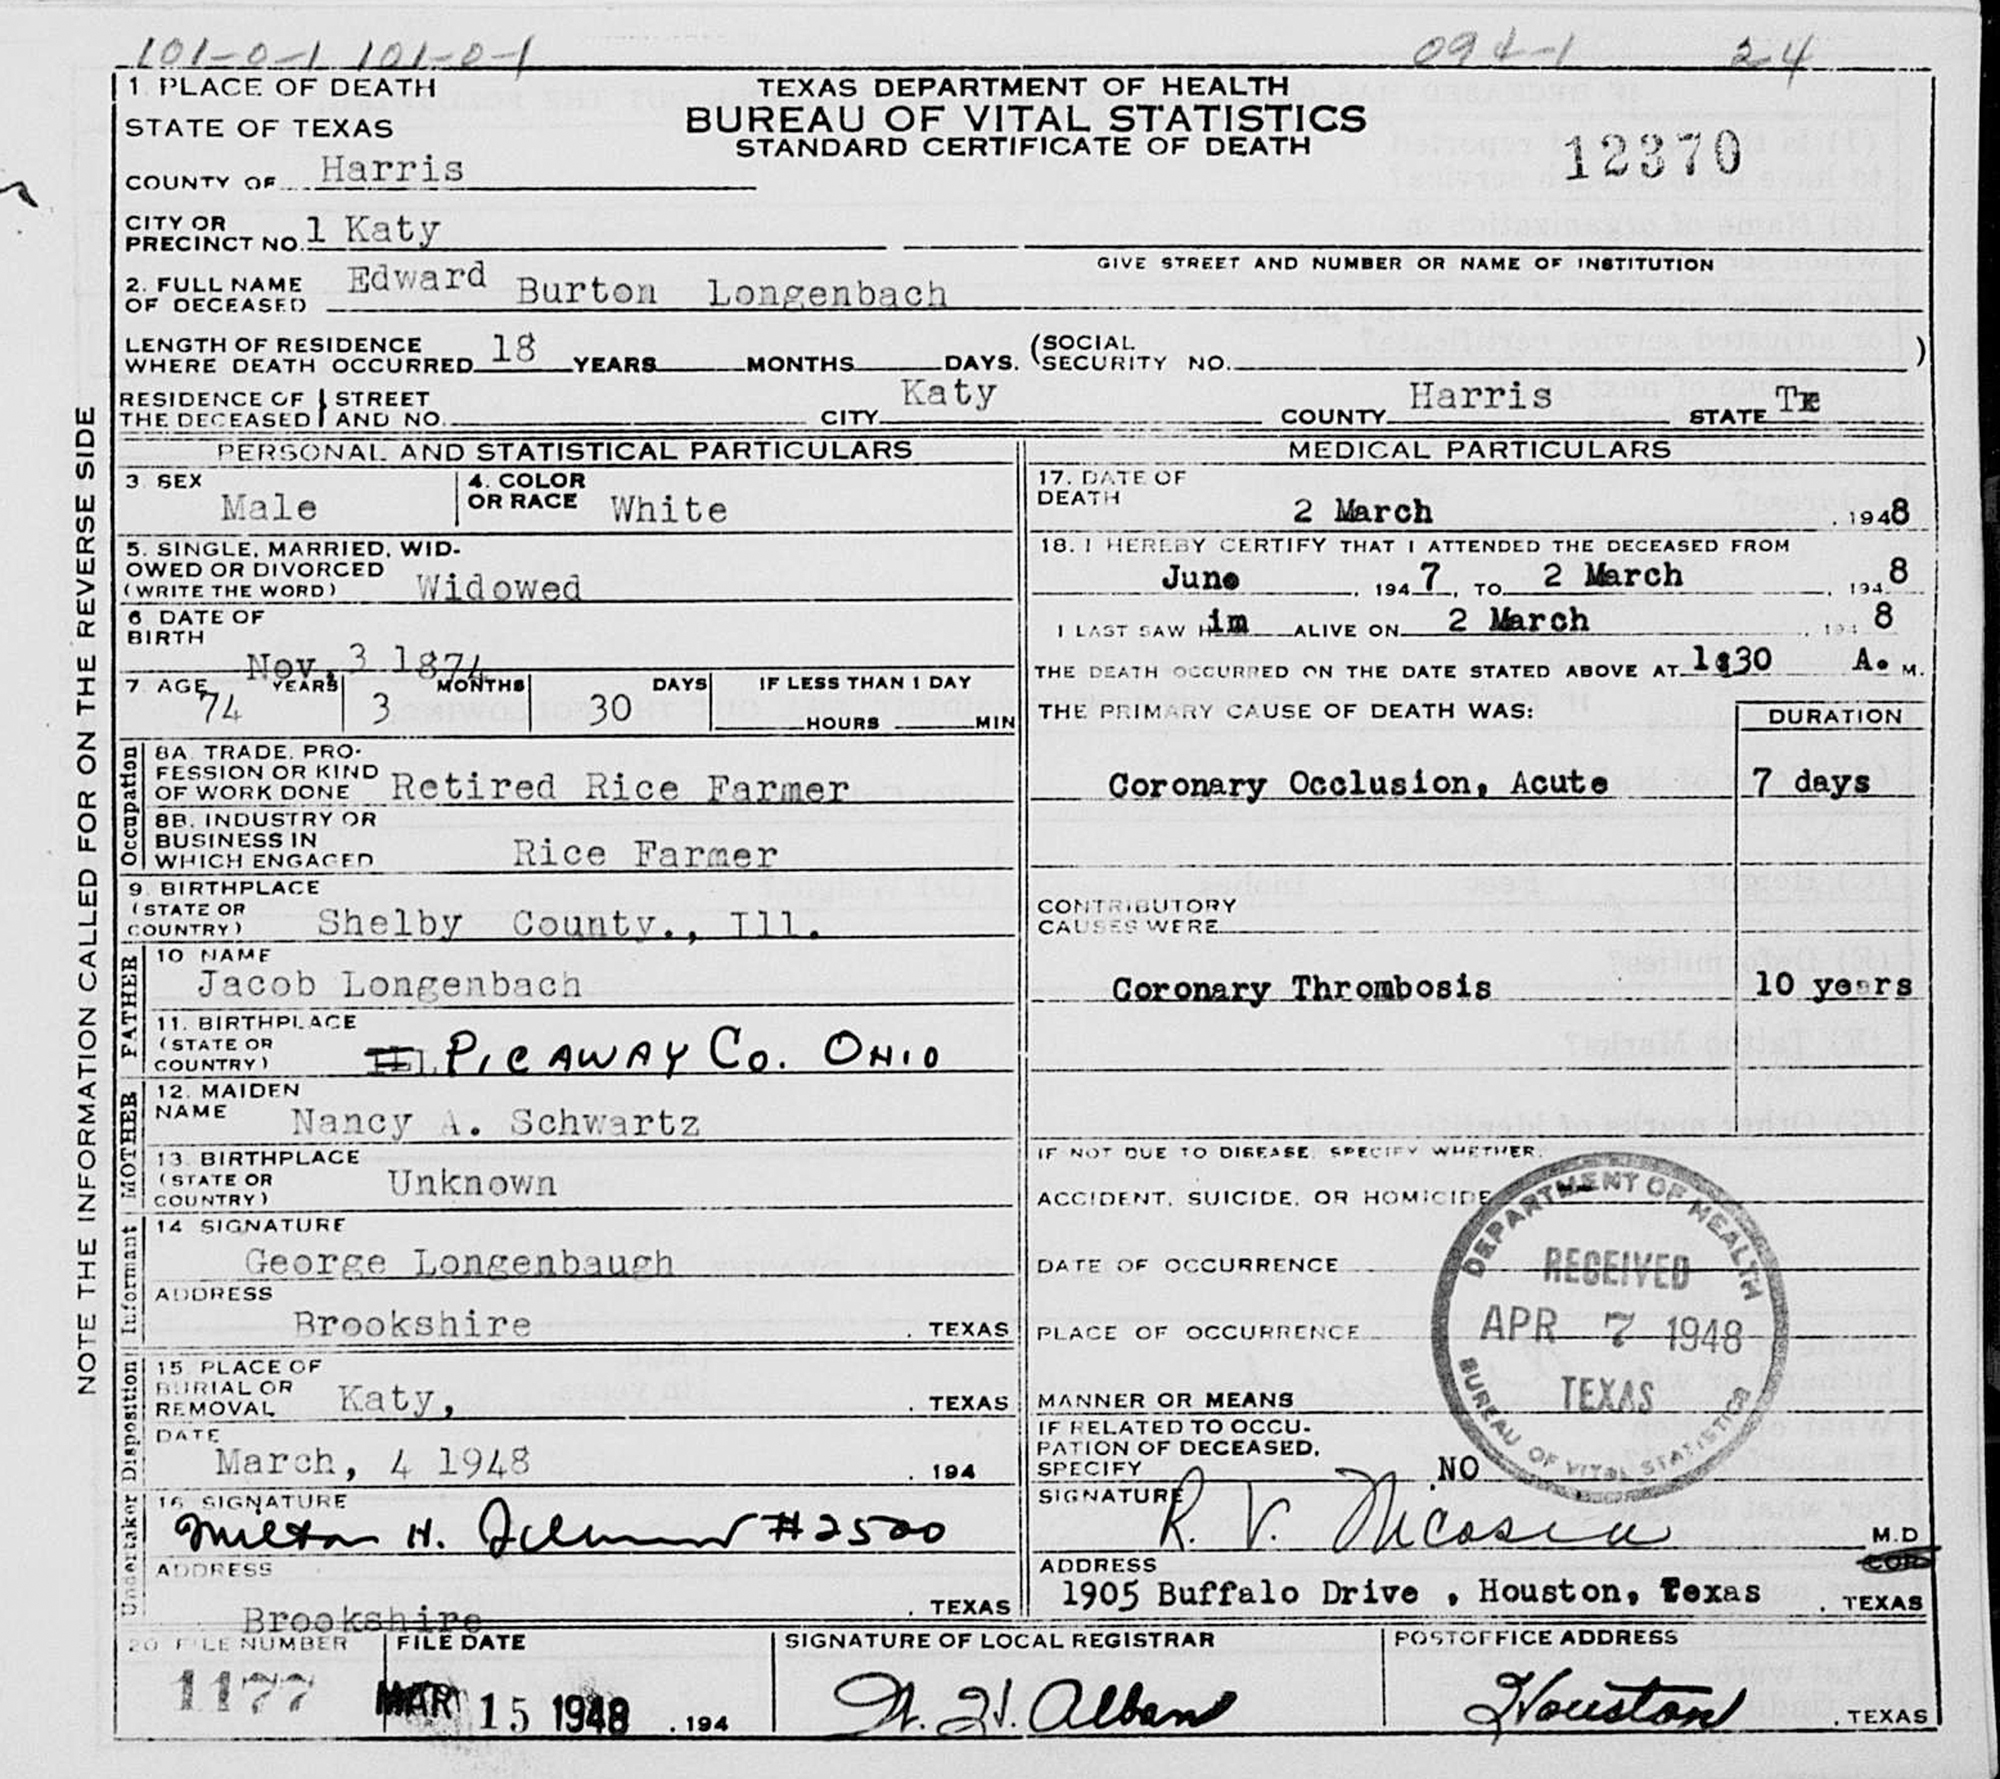 101-0-1 101-0-1 094-1 24
1. PLACE OF DEATH
STATE OF TEXAS
COUNTY OF Harris
TEXAS DEPARTMENT OF HEALTH
BUREAU OF VITAL STATISTICS
STANDARD CERTIFICATE OF DEATH
12370
CITY OR
PRECINCT NO. 1 Katy
GIVE STREET AND NUMBER OR NAME OF INSTITUTION
2. FULL NAME
OF DECEASED Edward Burton Longenbach
LENGTH OF RESIDENCE
WHERE DEATH OCCURRED 18 YEARS MONTHS DAYS. (SOCIAL
SECURITY NO. )
RESIDENCE OF } STREET
THE DECEASED } AND NO. CITY Katy COUNTY Harris STATE Tx
NOTE THE INFORMATION CALLED FOR ON THE REVERSE SIDE
PERSONAL AND STATISTICAL PARTICULARS
3. SEX
Male
4. COLOR
OR RACE White
5. SINGLE, MARRIED, WID-
OWED OR DIVORCED
(WRITE THE WORD) Widowed
6 DATE OF
BIRTH
Nov. 3 1874
7. AGE YEARS MONTHS DAYS IF LESS THAN 1 DAY
74 3 30 HOURS MIN
Occupation
8A. TRADE, PRO-
FESSION OR KIND
OF WORK DONE Retired Rice Farmer
8B. INDUSTRY OR
BUSINESS IN
WHICH ENGAGED Rice Farmer
9. BIRTHPLACE
(STATE OR
COUNTRY) Shelby County., Ill.
FATHER
10 NAME
Jacob Longenbach
11. BIRTHPLACE
(STATE OR
COUNTRY) PICAWAY CO. OHIO
MOTHER
12. MAIDEN
NAME Nancy A. Schwartz
13. BIRTHPLACE
(STATE OR
COUNTRY) Unknown
Informant
14 SIGNATURE
George Longenbaugh
ADDRESS
Brookshire , TEXAS
Disposition
15. PLACE OF
BURIAL OR
REMOVAL Katy, , TEXAS
DATE
March, 4 1948 , 194
Undertaker
16. SIGNATURE
Milton H. #2500
ADDRESS
Brookshire , TEXAS
MEDICAL PARTICULARS
17. DATE OF
DEATH 2 March , 1948
18. I HEREBY CERTIFY THAT I ATTENDED THE DECEASED FROM
June , 1947, TO 2 March , 1948
I LAST SAW Him ALIVE ON 2 March , 1948
THE DEATH OCCURRED ON THE DATE STATED ABOVE AT 1:30 A. M.
THE PRIMARY CAUSE OF DEATH WAS: DURATION
Coronary Occlusion, Acute 7 days
CONTRIBUTORY
CAUSES WERE
Coronary Thrombosis 10 years
IF NOT DUE TO DISEASE, SPECIFY WHETHER:
ACCIDENT, SUICIDE, OR HOMICIDE
DATE OF OCCURRENCE
PLACE OF OCCURRENCE
MANNER OR MEANS
IF RELATED TO OCCU-
PATION OF DECEASED,
SPECIFY NO
DEPARTMENT OF HEALTH
RECEIVED
APR 7 1948
TEXAS
BUREAU OF VITAL STATISTICS
SIGNATURE R. V. Nicosia M.D
ADDRESS
1905 Buffalo Drive , Houston, Texas , TEXAS
20 FILE NUMBER
1177
FILE DATE
MAR 15 1948 , 194
SIGNATURE OF LOCAL REGISTRAR
W. H. Alban
POSTOFFICE ADDRESS
Houston , TEXAS